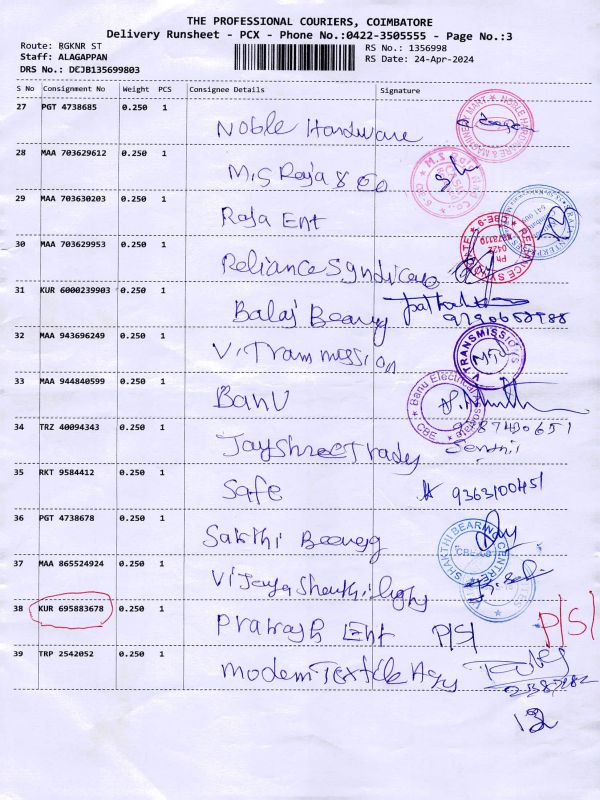 THE PROFESSIONAL COURIERS, COIMBATORE
Delivery Runsheet - PCX - Phone No.:0422-3505555 - Page No.:3
Route: RGKNR ST
RS No.: 1356998
Staff: ALAGAPPAN
RS Date: 24-Apr-2024
DRS No.: DCJB135699803
S No Consignment No Weight PCS Consignee Details Signature
27 PGT 4738685 0.250 1
Noble Hardware
28 MAA 703629612 0.250 1
M.S Raja & Co
29 MAA 703630203 0.250 1
Raja Ent
30 MAA 703629953 0.250 1
Reliance Syndicate
31 KUR 6000239903 0.250 1
Balaj Bearing
9790658988
32 MAA 943696249 0.250 1
V. Trammission
V TRANSMISSIONS
33 MAA 944840599 0.250 1
Banu
Banu Electrical
CBE
34 TRZ 40094343 0.250 1
9787430651
Jayshree Trady
Senthil
35 RKT 9584412 0.250 1
Safe
9363100451
36 PGT 4738678 0.250 1
Sakthi Beereg
SHAKTHI BEARING CENTRE
37 MAA 865524924 0.250 1
Vijaya Shanthi lights
38 KUR 695883678 0.250 1
Prakash Ent P/S/
P/S/
39 TRP 2542052 0.250 1
Modern Textile Agy
12